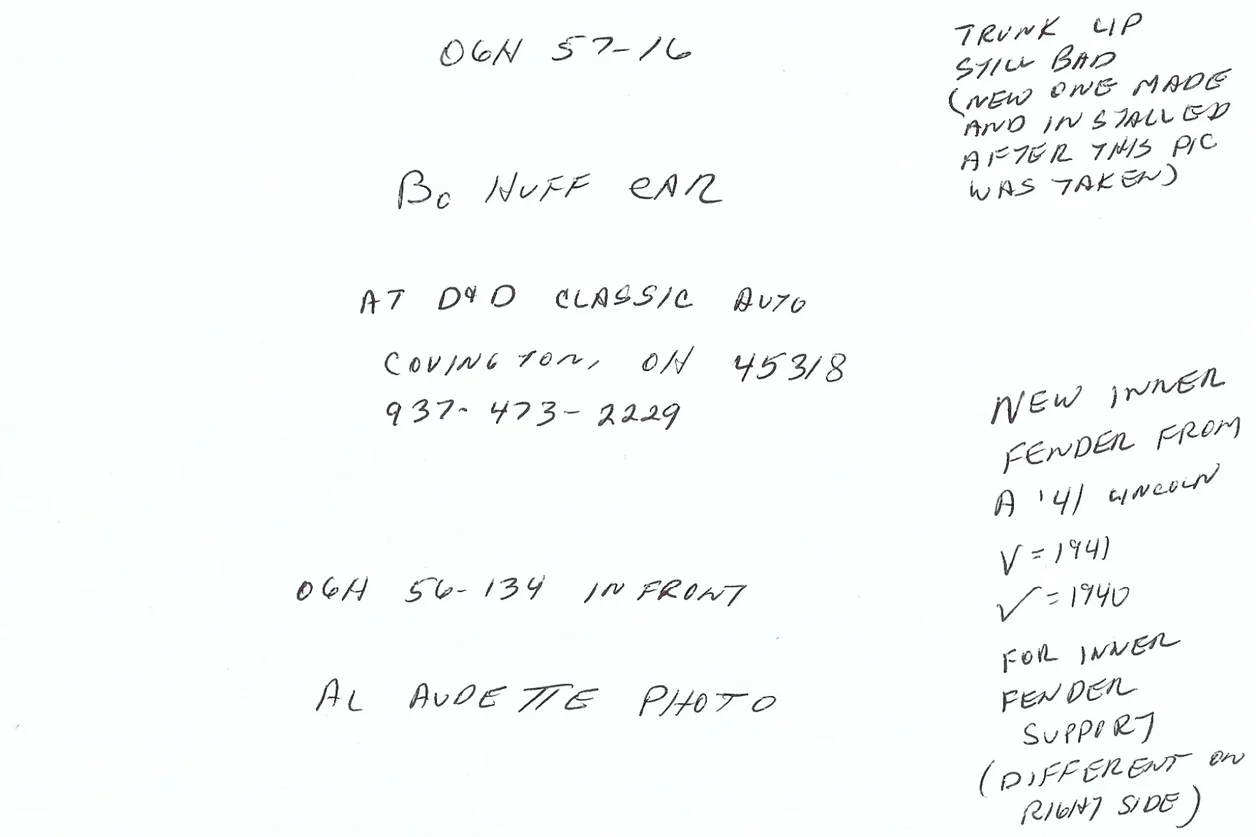 06H 57-16
Bo HUFF CAR
AT D&D CLASSIC AUTO
COVINGTON, OH 45318
937-473-2229
06H 56-134 IN FRONT
AL AUDETTE PHOTO
TRUNK LIP
STILL BAD
(NEW ONE MADE
AND INSTALLED
AFTER THIS PIC
WAS TAKEN)
NEW INNER
FENDER FROM
A '41 LINCOLN
V = 1941
✓ = 1940
FOR INNER
FENDER
SUPPORT
(DIFFERENT ON
RIGHT SIDE)